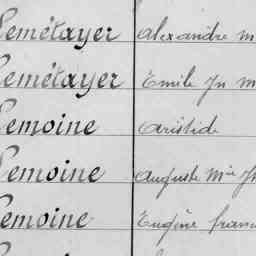 Lemétayer Alexandre M
Lemétayer Emile Jn M
Lemoine Aristide
Lemoine Auguste Mie Jn
Lemoine Eugène Franc